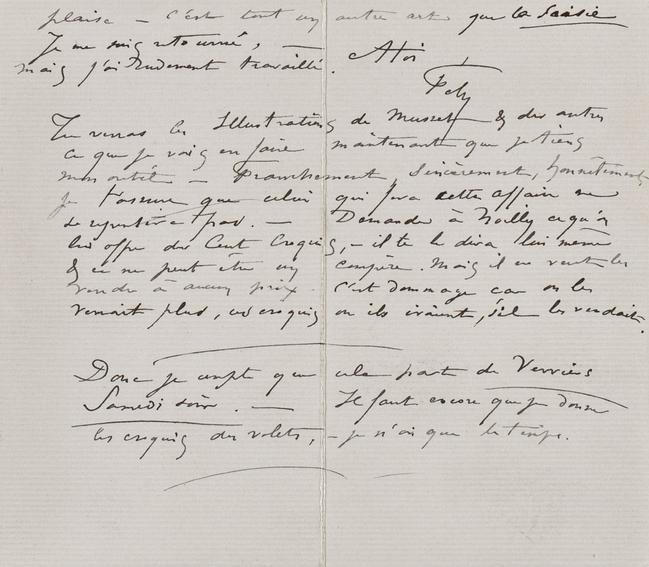 plaise — c'est tout un autre art que la Saisie
Je me suis retourné, —
mais j'ai rudement travaillé. A toi
Fély
Tu verras les Illustrations de Musset & des autres
ce que je vais en faire maintenant que je tiens
mon outil — Franchement, sincèrement, honnêtement
je t'assure que celui qui fera cette affaire ne
se repentira pas. — Demander à Noilly ce qu'on
lui offre des Cent Croquis, — il te le dira lui même
& ce ne peut être un compère. Mais il ne veut les
vendre à aucun prix. C'est dommage car on les
verrait plus, ces croquis où ils iraient, s'il les vendait.
Donc je compte que cela parte de Verviers
Samedi soir. — Il faut encore que je donne
les croquis des volets, — je n'ai que le temps.